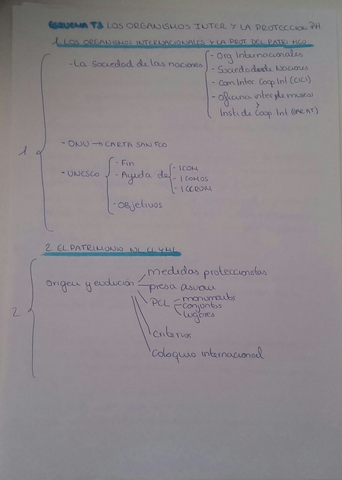 ESQUEMA T3 LOS ORGANISMOS INTER Y LA PROTECCION PH
1. LOS ORGANISMOS INTERNACIONALES Y LA PROT. DEL PATRI. HCO
- La Sociedad de las naciones
- Org Internacionales
- Sociedad de Naciones
- Com. Inter. Coop. Int (CICI)
- Oficina inter de museos
Insti. de Coop. Int
1
- ONU → CARTA SAN FCO
- UNESCO
- Fin
- Ayuda de
- ICOM
- ICOMOS
- ICCROM
- Objetivos
2. EL PATRIMONIO
2
Origen y evolución
medidas proteccionistas
presa asuan
PCL
monumento
conjuntos
lugares
Criterios
Coloquio internacional